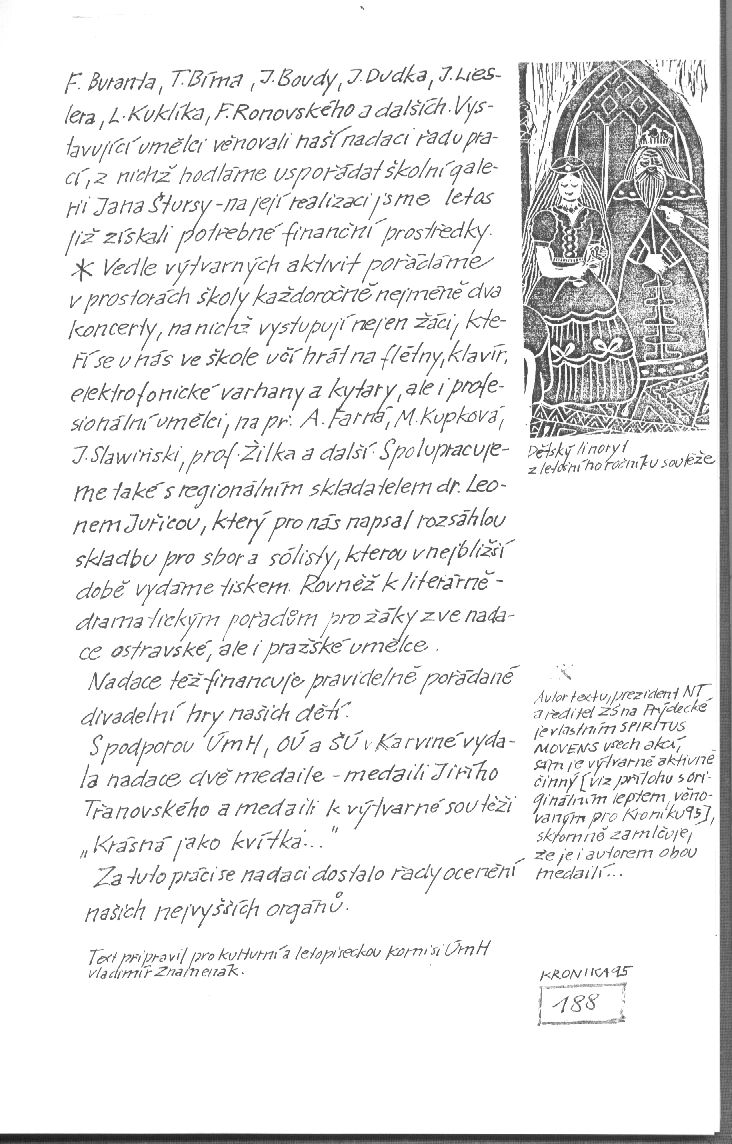 F. Buranta, T. Bíma, J. Boudy, J. Dudka, J. Lies-
lera, L. Kuklíka, F. Ronovského a dalších. Vys-
tavující umělci věnovali naší nadaci řadu pra-
cí, z nichž hodláme uspořádat školní gale-
rii Jana Štursy - na její realizaci jsme letos
již získali potřebné finanční prostředky.
* Vedle výtvarných aktivit pořádáme
v prostorách školy každoročně nejméně dva
koncerty, na nichž vystupují nejen žáci, kte-
ří se u nás ve škole učí hrát na flétny, klavír,
elektrofonické varhany a kytary, ale i profe-
sionální umělci, na př. A. Farná, M. Kupková,
J. Slawiński, prof. Žilka a další. Spolupracuje-
me také s regionálním skladatelem dr. Leo-
nem Juřicou, který pro nás napsal rozsáhlou
skladbu pro sbor a sólisty, kterou v nejbližší
době vydáme tiskem. Rovněž k literárně-
dramatickým pořadům pro žáky zve nada-
ce ostravské, ale i pražské umělce.
Nadace též financuje pravidelně pořádané
divadelní hry našich dětí.
S podporou ÚmH, OÚ a ŠÚ v Karviné vyda-
la nadace dvě medaile - medaili Jiřího
Třanovského a medaili k výtvarné soutěži
„Krásná jako kvítka..."
Za tuto práci se nadaci dostalo řady ocenění
našich nejvyšších orgánů.
Text připravil pro kulturní a letopiseckou komisi ÚmH
Vladimír Znamenák.
Dětský linoryt
z letošního ročníku soutěže
Autor textu, prezident NT
a ředitel ZŠ na Frýdecké
je vlastním SPIRITUS
MOVENS všech akcí,
sám je výtvarně aktivně
činný [viz přílohu s ori-
ginálním leptem, věno-
vaným pro Kroniku 95],
skromně zamlčuje,
že je i autorem obou
medailí...
KRONIKA 95
188